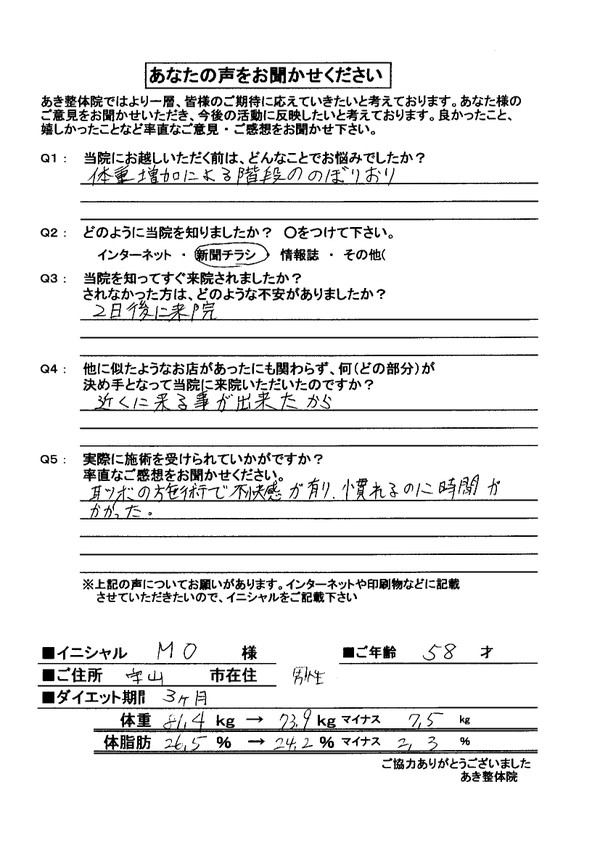 あなたの声をお聞かせください
あき整体院ではより一層、皆様のご期待に応えていきたいと考えております。あなた様の
ご意見をお聞かせいただき、今後の活動に反映したいと考えております。良かったこと、
嬉しかったことなど率直なご意見・ご感想をお聞かせ下さい。
Q1： 当院にお越しいただく前は、どんなことでお悩みでしたか？
体重増加による階段ののぼりおり
Q2： どのように当院を知りましたか？ 〇をつけて下さい。
インターネット ・ 新聞チラシ ・ 情報誌 ・ その他(
Q3： 当院を知ってすぐ来院されましたか？
されなかった方は、どのような不安がありましたか？
2日後に来院
Q4： 他に似たようなお店があったにも関わらず、何(どの部分)が
決め手となって当院に来院いただいたのですか？
近くに来る事が出来たから
Q5： 実際に施術を受けられていかがですか？
率直なご感想をお聞かせください。
耳ツボの施術で不快感が有り、慣れるのに時間が
かかった。
※上記の声についてお願いがあります。インターネットや印刷物などに記載
させていただきたいので、イニシャルをご記載下さい
■イニシャル MO 様 ■ご年齢 58 才
■ご住所 守山 市在住 男性
■ダイエット期間 3ヶ月
体重 81,4 kg → 73,9 kg マイナス 7,5 kg
体脂肪 26,5 % → 24,2 % マイナス 2,3 %
ご協力ありがとうございました
あき整体院